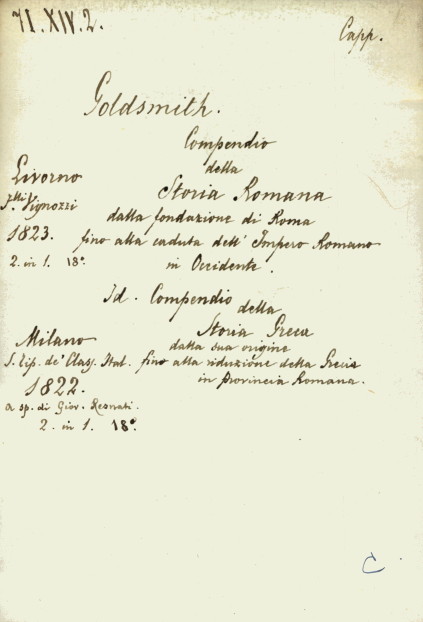 71.XIV.2.
Capp.
Goldsmith.
Compendio
della
Livorno
Storia Romana
F.lli Vignozzi
dalla fondazione di Roma
1823.
fino alla caduta dell' Impero Romano
2. in 1. 18°
in Occidente.
Id. Compendio
della
Milano
Storia Greca
dalla sua origine
S. Tip. de' Class. Ital.
fino alla riduzione della Grecia
1822.
in provincia Romana.
a sp. di Giov. Resnati.
2. in 1. 18°
C